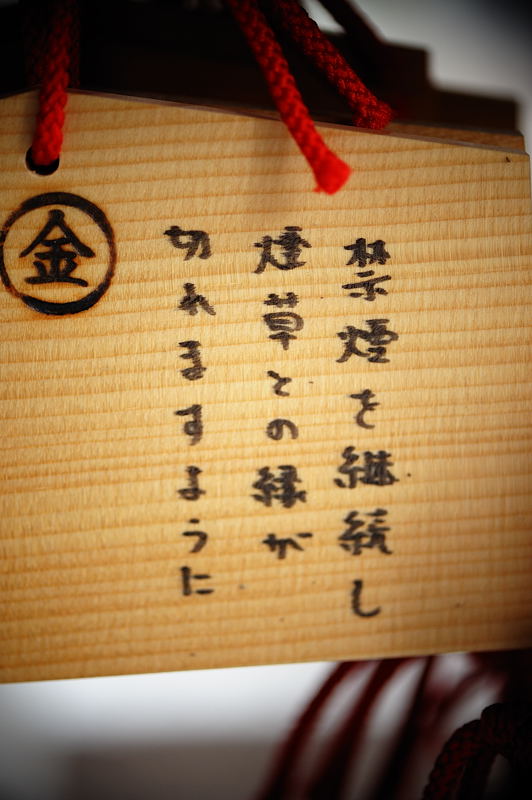 禁煙を継続し
煙草との縁が
切れますように
金